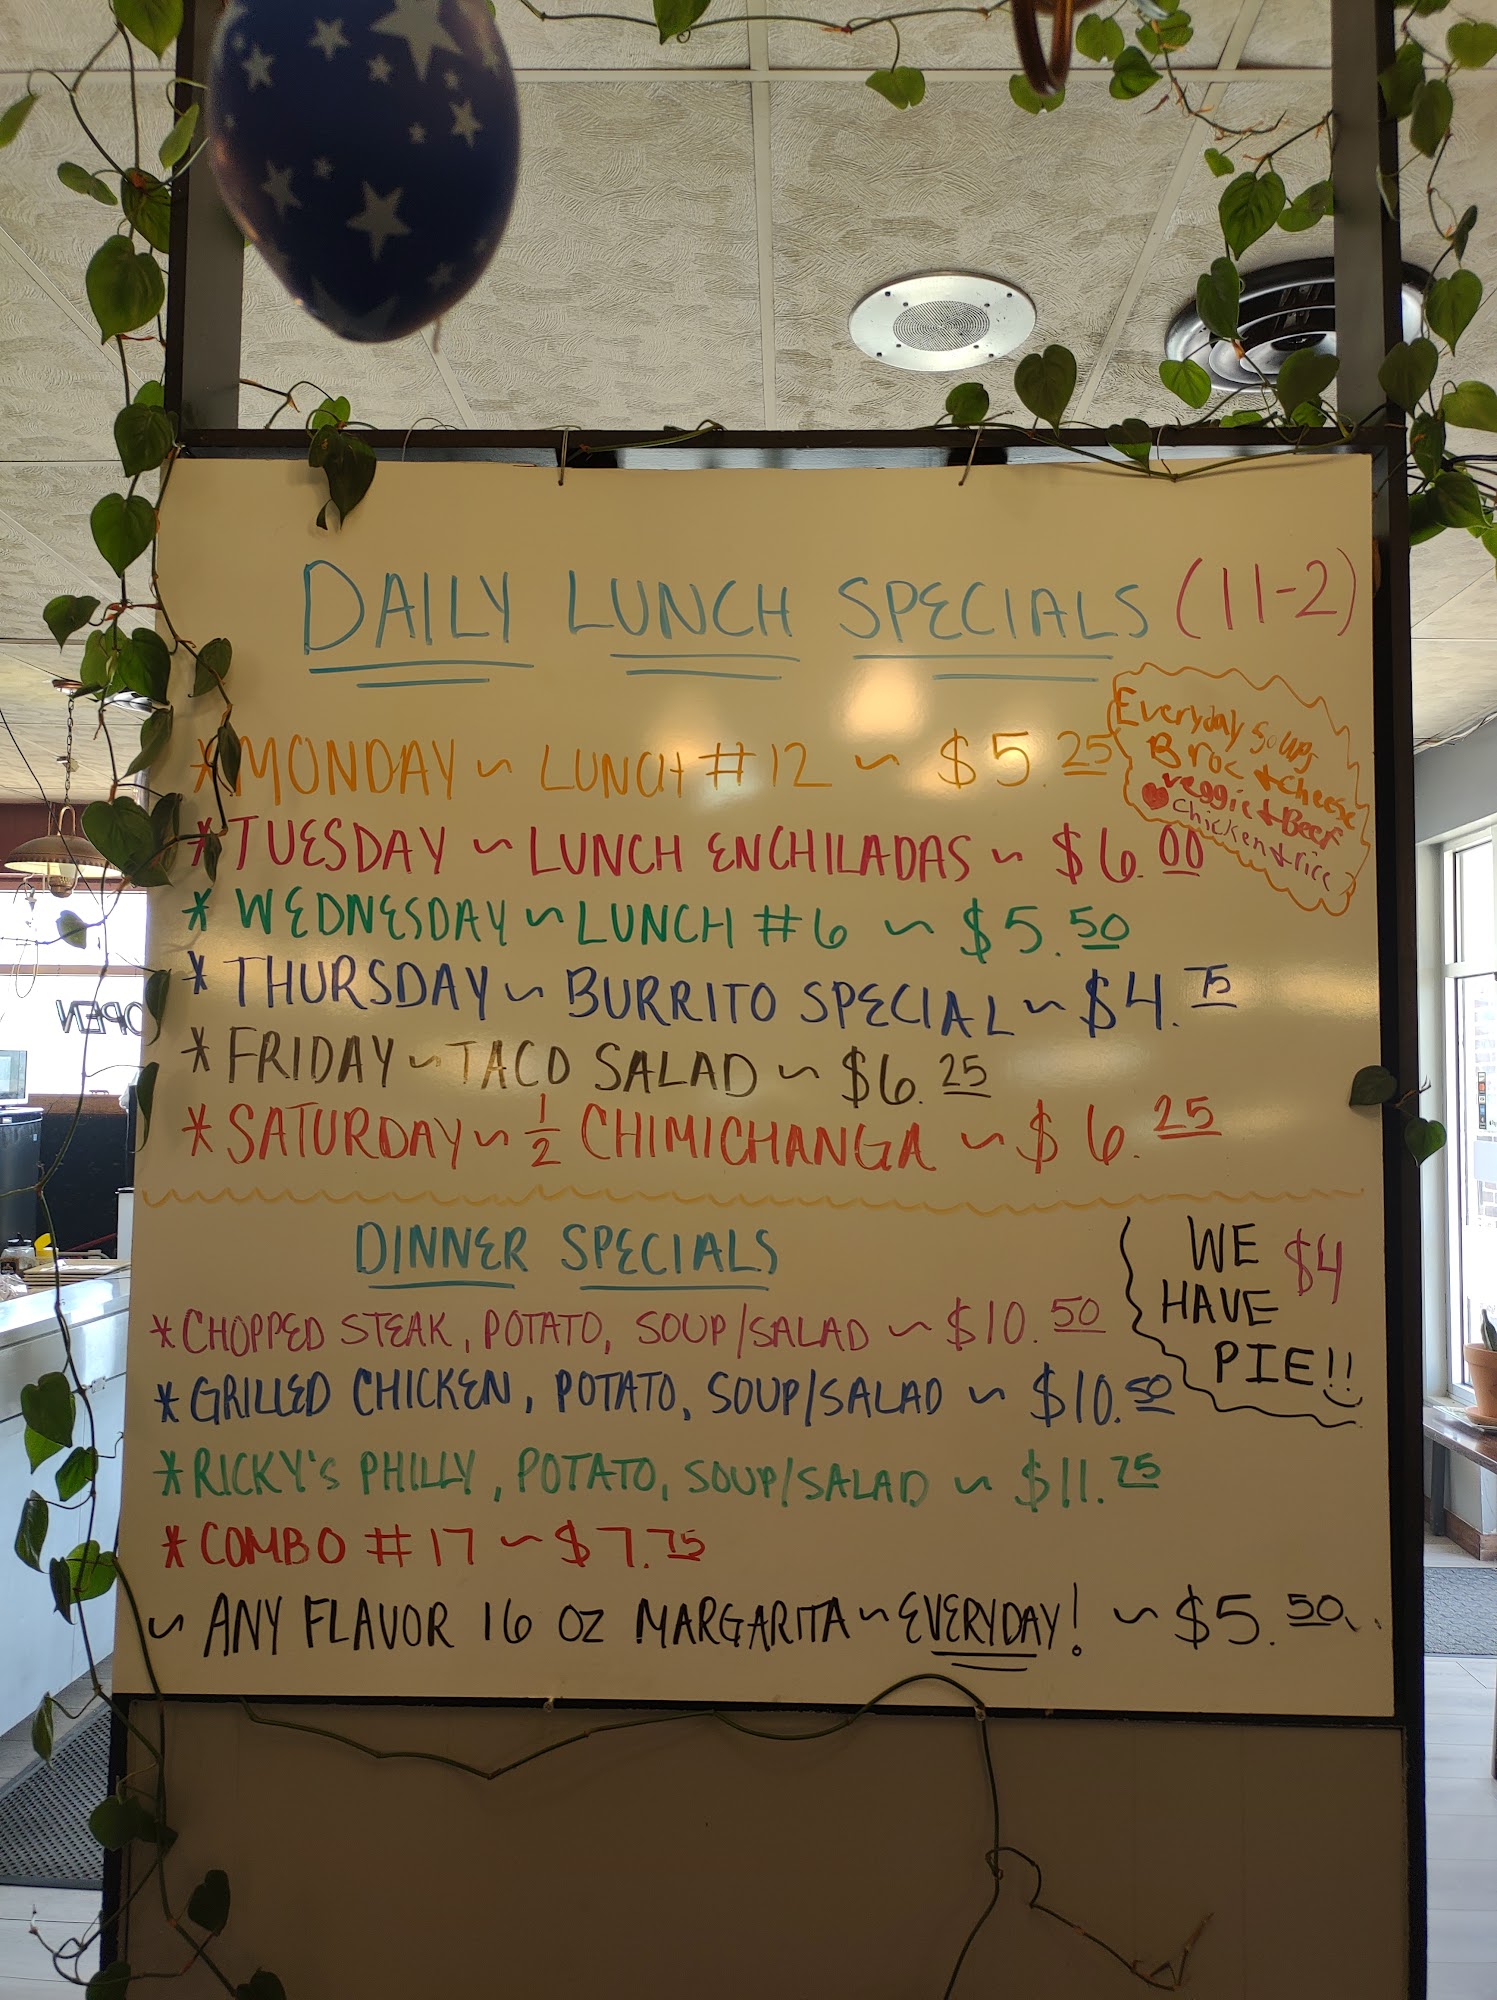 DAILY LUNCH SPECIALS (11-2)
Everyday Soups
Broc & Cheese
veggie & Beef
chicken & rice
*MONDAY ~ LUNCH #12 ~ $5.25
*TUESDAY ~ LUNCH ENCHILADAS ~ $6.00
*WEDNESDAY ~ LUNCH #6 ~ $5.50
*THURSDAY ~ BURRITO SPECIAL ~ $4.75
*FRIDAY ~ TACO SALAD ~ $6.25
*SATURDAY ~ 1/2 CHIMICHANGA ~ $6.25
DINNER SPECIALS
*CHOPPED STEAK, POTATO, SOUP/SALAD ~ $10.50
*GRILLED CHICKEN, POTATO, SOUP/SALAD ~ $10.50
*RICKY'S PHILLY, POTATO, SOUP/SALAD ~ $11.75
*COMBO #17 ~ $7.75
~ ANY FLAVOR 16 OZ MARGARITA ~ EVERYDAY! ~ $5.50
WE $4
HAVE
PIE!!
OPEN